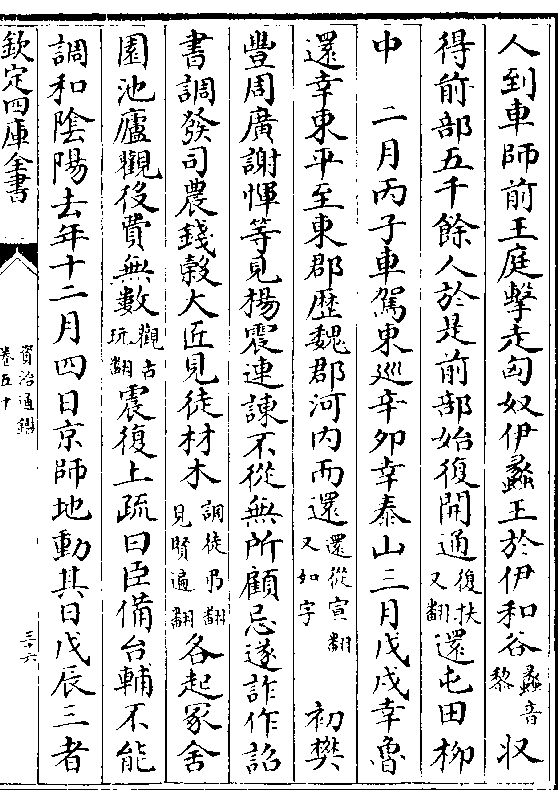 人到車師前王庭擊走匈奴伊蠡王於伊和谷蠡音黎收
得前部五千餘人於是前部始復開通復扶又翻還屯田柳
中 二月丙子車駕東巡辛卯幸泰山三月戊戌幸魯
還幸東平至東郡歷魏郡河内而還還從宣翻又如字 初樊
豐周廣謝惲等見楊震連諫不從無所顧忌遂詐作詔
書調發司農錢榖大匠見徒材木調徒弔翻見賢遍翻各起冢舍
園池廬觀役費無數觀古玩翻震復上疏曰臣備台輔不能
調和陰陽去年十二月四日京師地動其日戊辰三者
欽定四庫全書
資治通鑑
卷五十
三十六